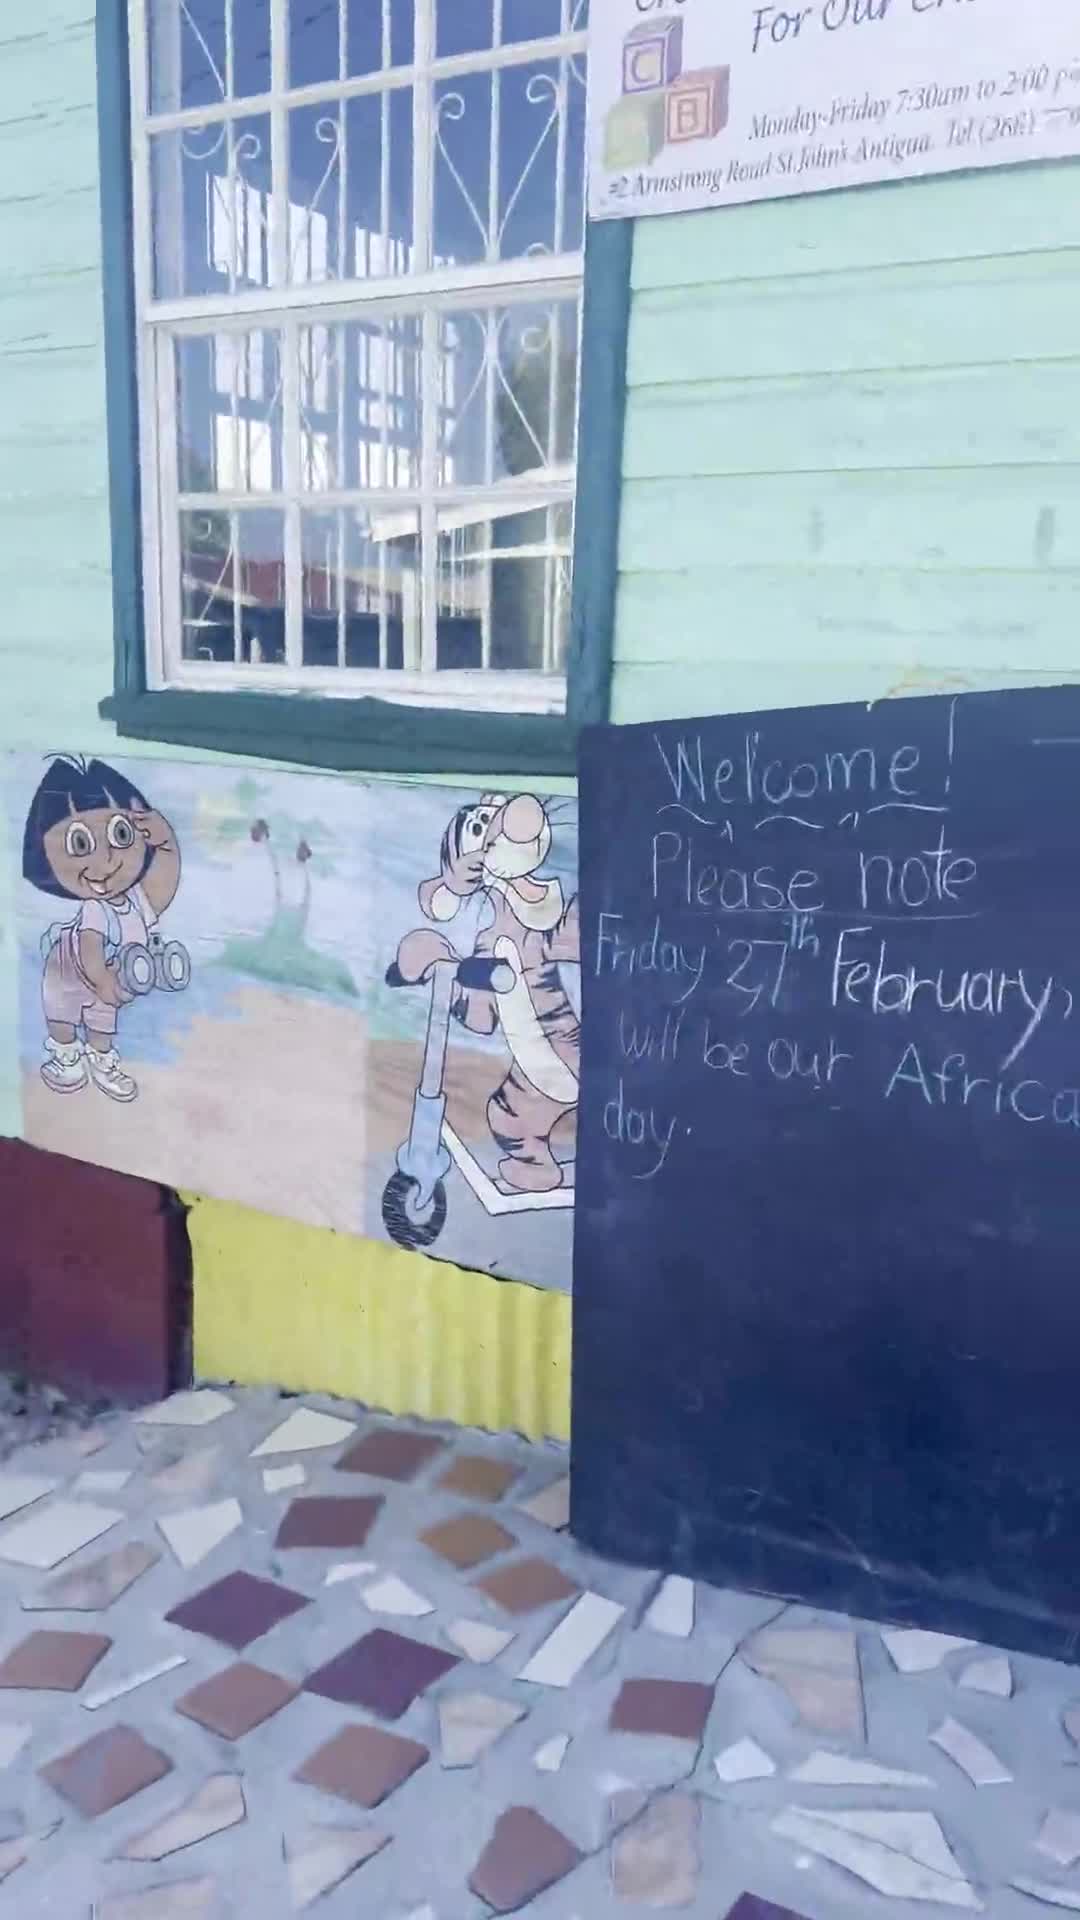 For Our
C
B
Monday-Friday 7:30am to 2:00
#2 Armstrong Road St.John's Antigua. Tel (268)
Welcome!
Please note
Friday 27th February,
will be our Africa
day.